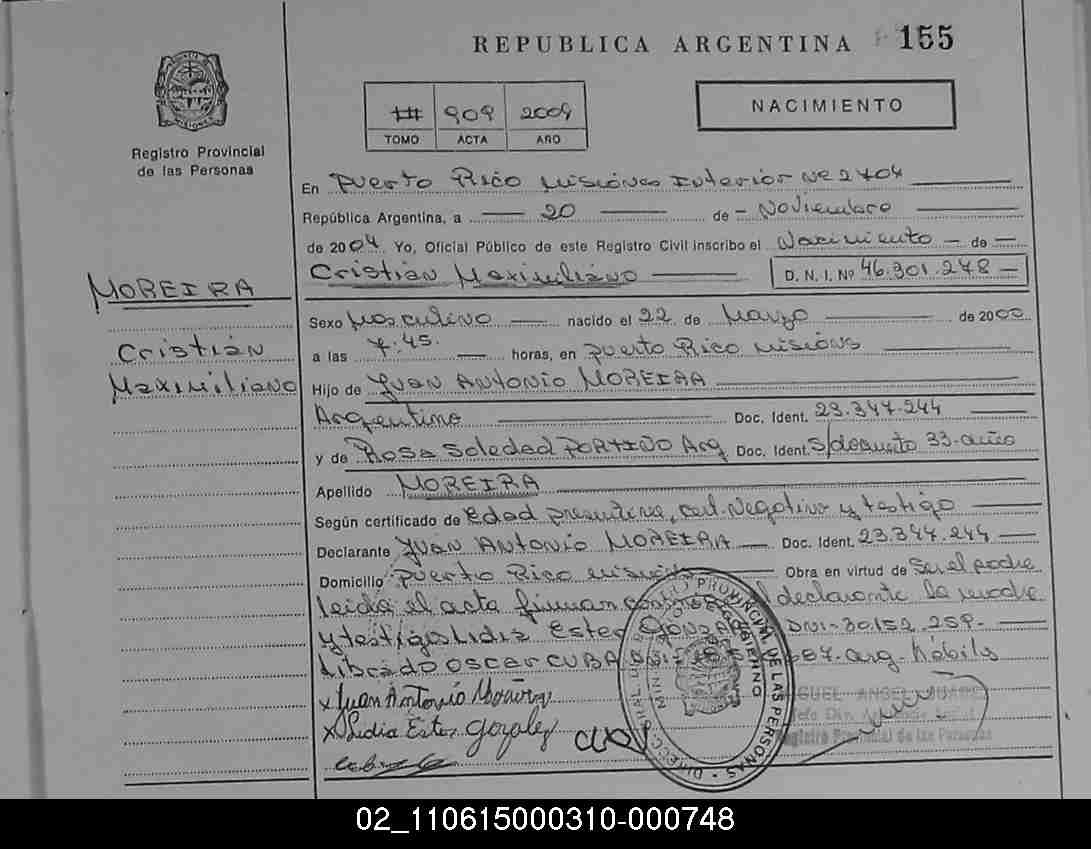 REPUBLICA ARGENTINA 155
909 2004
TOMO ACTA AÑO
NACIMIENTO
Registro Provincial
de las Personas
En Puerto Rico Misiones Interior Nº 2704
República Argentina, a 20 de Noviembre
de 2004. Yo, Oficial Público de este Registro Civil inscribo el Nacimiento de
Cristián Maximiliano D. N. I. Nº 46.301.278
MOREIRA
Cristián
Maximiliano
Sexo Masculino nacido el 22 de Marzo de 2000
a las 7:45. horas, en Puerto Rico Misiones
Hijo de Juan Antonio MOREIRA
Argentino Doc. Ident. 23.347.244
y de Rosa Soledad PORTIÑO Arg Doc. Ident. S/documento 33 años
Apellido MOREIRA
Según certificado de Edad presuntiva, cert. Negativo y testigo
Declarante Juan Antonio MOREIRA Doc. Ident. 23.347.244
Domicilio Puerto Rico Misiones Obra en virtud de Ser el padre
leída el acta firman declarante la madre
y testigos Lidia Ester DNI-30.152.259-
Librado OSCAR CUBA arg. hábiles
x Juan Antonio
x Lidia Ester
PROVINCIAL DE LAS PERSONAS
MIGUEL ANGEL
Registro Provincial de las Personas
02_110615000310-000748